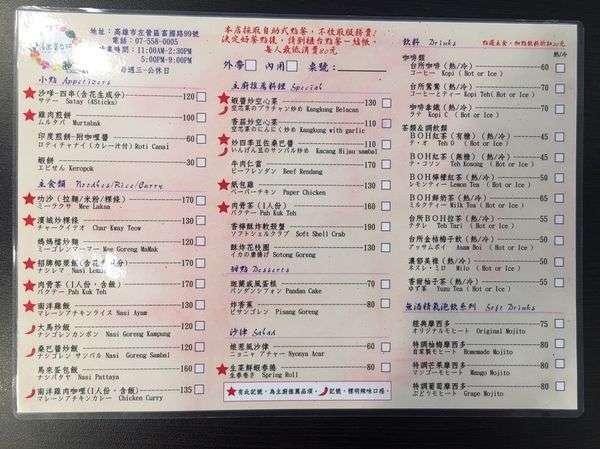 地址：高雄市左營區富國路99號
電話：07-558-0005
營業時間：11:00AM-2:30PM
5:00PM-9:00PM
每週三-公休日
本店採取自助式點餐，不收取服務費！
決定好餐點後，請到櫃台點餐—結帳。
每人最低消費80元
外帶 內用 桌號：
小點 Appetizers
沙嗲-四串(含花生成分) 120
サテー Satay (4Sticks)
雞肉煎餅 100
ムルタバ Murtabak
印度煎餅-附咖哩醬 60
ロティチャナイ(カレー汁付) Roti Canai
蝦餅 30
エビせん Keropok
主食類 Noodles/Rice/Curry
叻沙(拉麵/米粉/粿條) 170
ミーラクサ Mee Laksa
檳城炒粿條 130
チャークイテオ Char Kway Teow
媽媽檔炒麵
ミーゴレンマーマー Mee Goreng MaMak
招牌椰漿飯(含花生成分)
ナシレマ Nasi Lemak
肉骨茶(1人份、含飯)
バクテー Pah Kuk Teh
南洋雞飯
マレーシアチキンライス Nasi Ayam
大馬炒飯 110
ナシゴレンカンポン Nasi Goreng Kampung
桑巴醬炒飯
ナシゴレン サンバル Nasi Goreng Sambal
馬來蛋包飯
ナシパタヤ Nasi Pattaya
南洋雞肉咖哩(1人份、含飯) 135
マレーシアチキンカレー Chicken Curry
主廚推薦料理 Special
蝦醬炒空心菜 130
空花菜のブラチャン炒め Kangkung Belacan
香蒜炒空心菜 110
空花菜のにんにく炒め Kangkung with garlic
炒四季豆佐桑巴醬 130
いんげん豆のサンバル炒め Kacang Hijau sambal
牛肉仁當 170
ビーフレンダン Beef Rendang
紙包雞 160
ペーパーチキン Paper Chicken
肉骨茶(1人份) 160
バクテー Pah Kuk Teh
香檸酥炸軟殼蟹
ソフトシェルクラブ Soft Shell Crab
酥炸花枝圈
イカの唐揚げ Sotong Goreng
甜點 Desserts
斑蘭戚風蛋糕 60
パンダンシフォン Pandan Cake
炸香蕉 80
ピサンゴレン Pisang Goreng
沙律 Salad
娘惹風沙律 60
ニョニャ アチャー Nyonya Acar
生菜鮮蝦春捲 80
生春巻き Spring Roll
有此記號，為主廚推薦品項。 記號，標明辣味口感。
飲料 Drinks
點選主食，加點飲料折20元
咖啡類
台所咖啡 (熱/冷)
コーヒー Kopi (Hot or Ice)
台所鴛鴦 (熱/冷)
コーヒーティー Kopi Teh (Hot or Ice)
咖啡拿鐵 (熱/冷) 70
ラテ Kopi C (Hot or Ice)
茶類&調飲類
BOH紅茶(有糖) (熱/冷) 50
テ・オ Teh O (Hot or Ice)
BOH紅茶(無糖) (熱/冷) 50
テ・コソン Teh Kosong (Hot or Ice)
BOH檸檬紅茶 (熱/冷) 60
レモンティー Lemon Tea (Hot or Ice)
BOH鮮奶茶 (熱/冷) 65
ミルクティー Milk Tea (Hot or Ice)
台所BOH拉茶 (熱/冷) 55
テタリ Teh Tarik (Hot or Ice)
台所金桔梅子飲 (熱/冷) 50
アッサムボイ Asam Boi (Hot or Ice)
濃郁美祿 (熱/冷) 45
ネスレ・ミロ Milo (Hot or Ice)
香甜柚子茶 (熱/冷) 50
ゆず茶 Yuzu Tea (Hot or Ice)
無酒精氣泡飲系列 Soft Drinks
經典摩西多 75
オリジナルモヒート Original Mojito
特調柚梅摩西多 80
自家製モヒート Homemade Mojito
特調芒果摩西多 80
マンゴーモヒート Mango Mojito
特調葡萄摩西多 80
ぶどうモヒート Grape Mojito